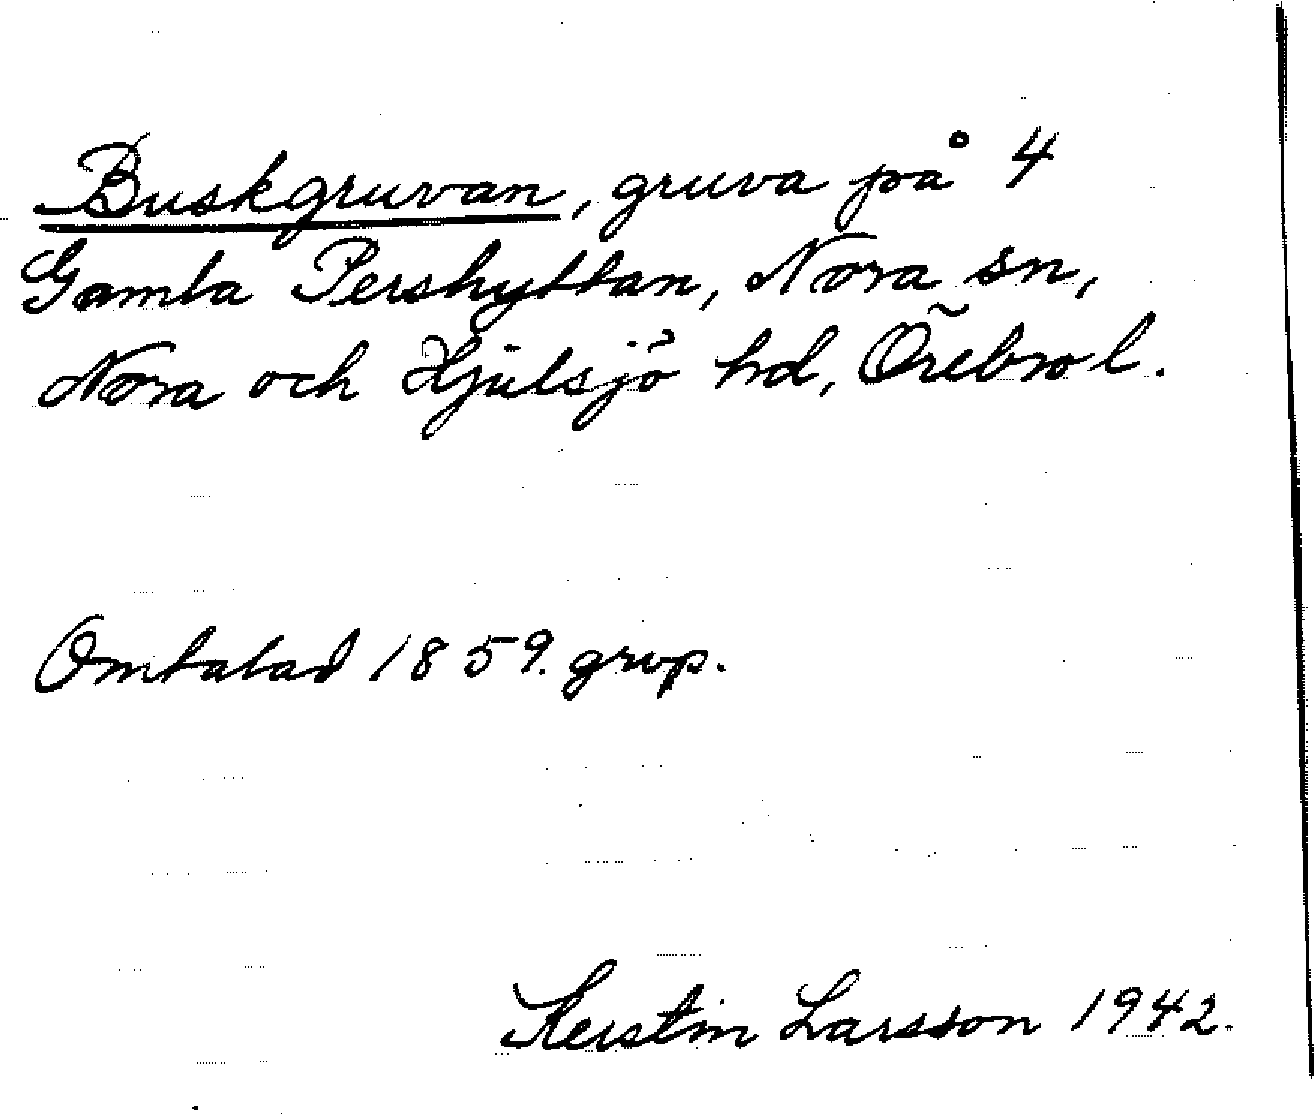 Buskgruvan, gruva på 4
Gamla Pershyttan, Nora sn,
Nora och Hjulsjö hd, Örebro l.
Omtalad 1859. grop.
Kerstin Larsson 1942.